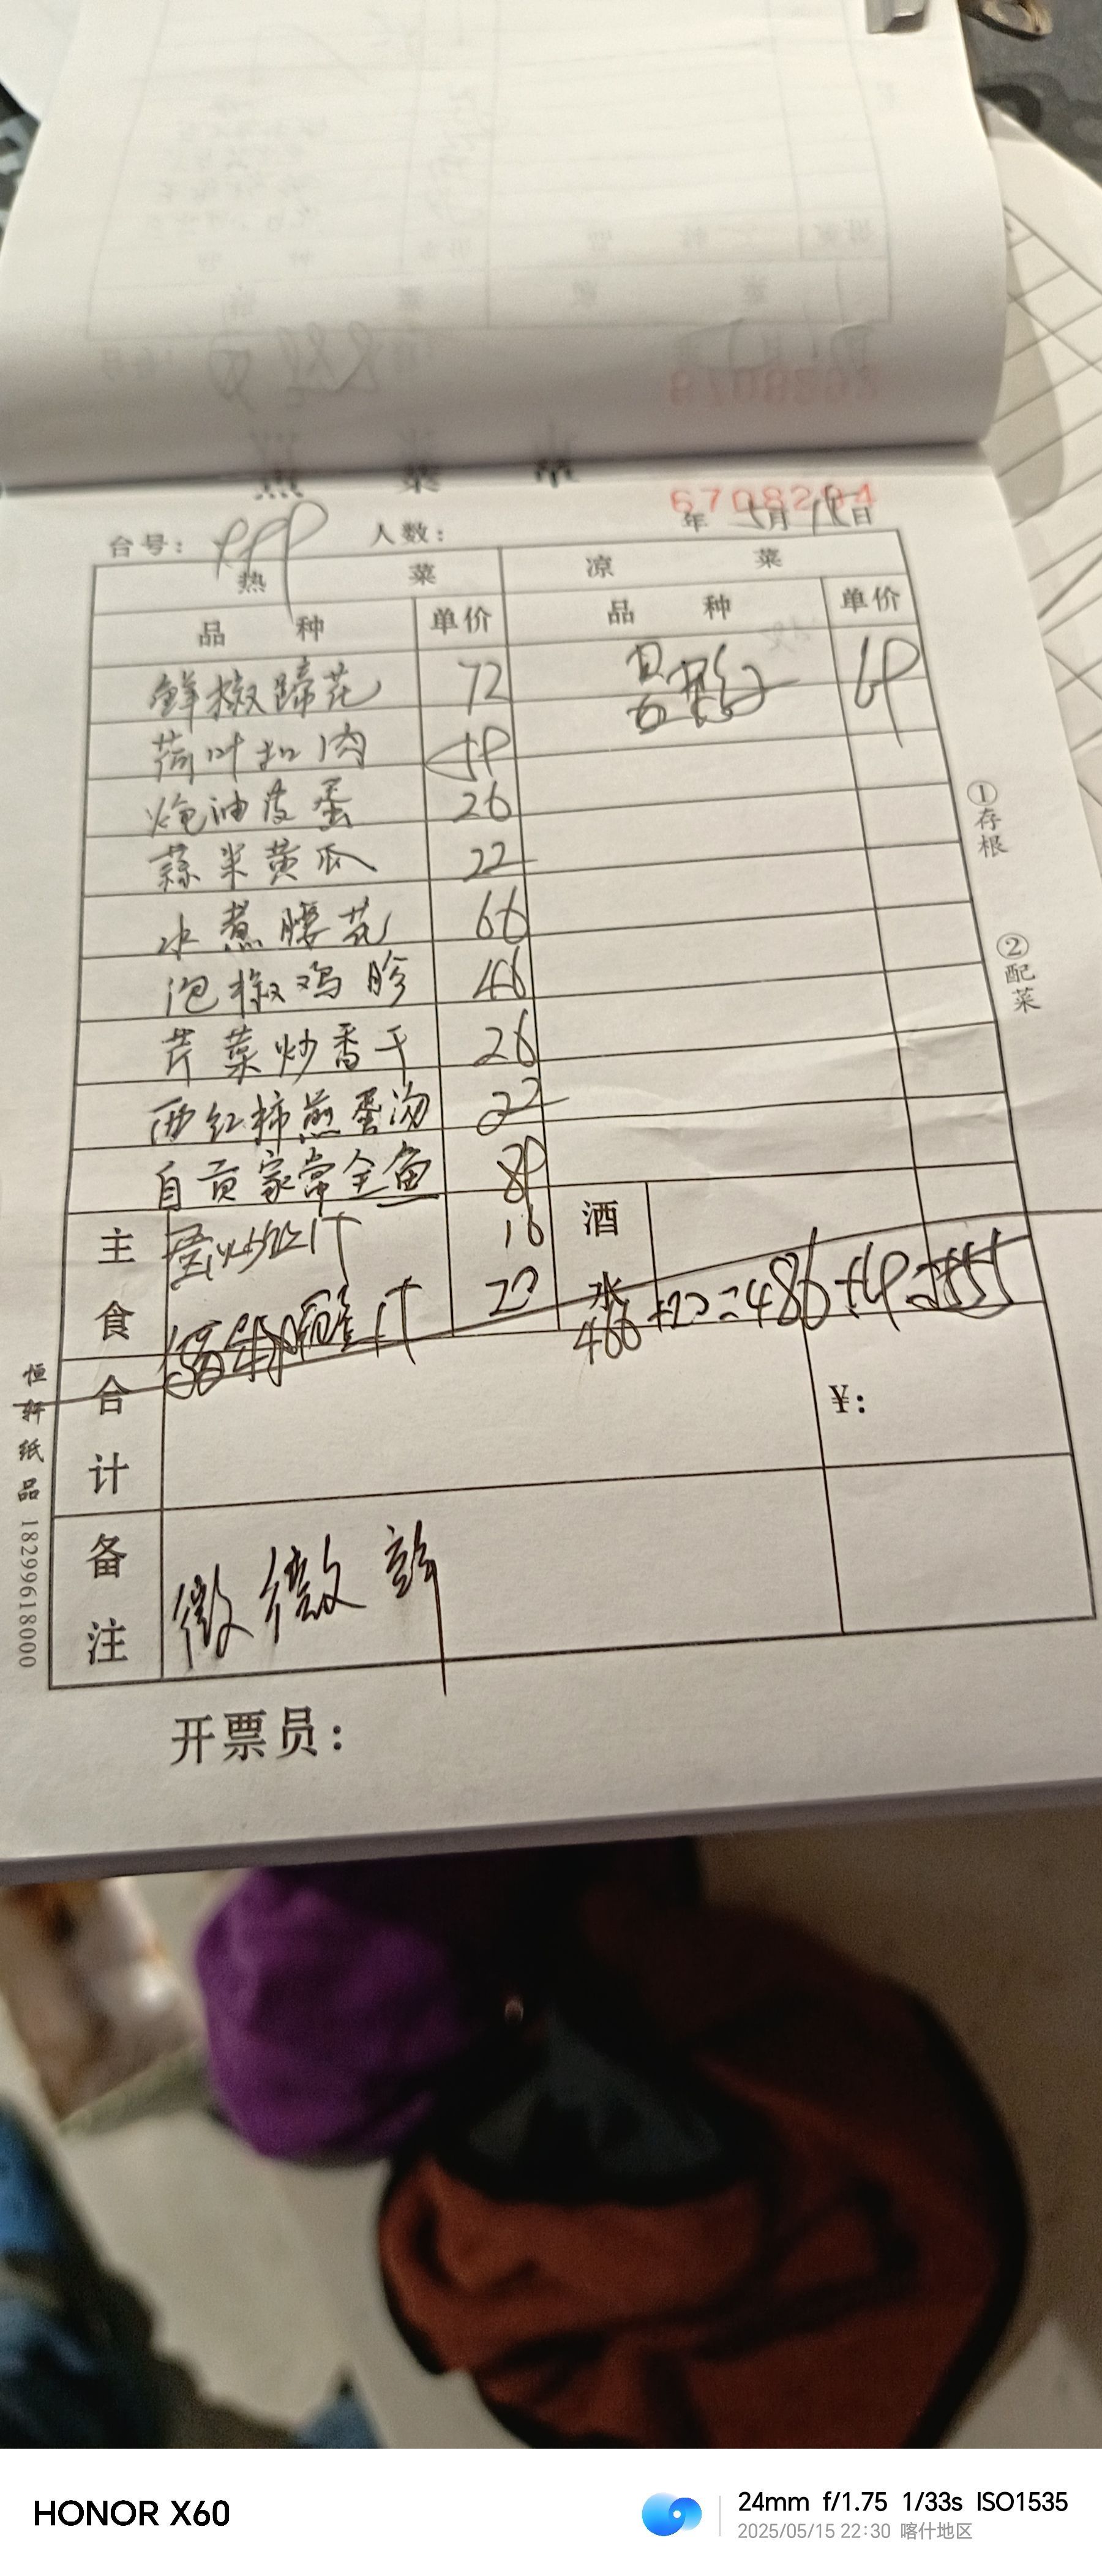 6708294
台号: 999 人数: 年 5月15日
热 菜 凉 菜
品 种 单价 品 种 单价
鲜椒蹄花 72 69
荷叶扣肉 59
炮油皮蛋 26
蒜米黄瓜 22
水煮腰花 66
泡椒鸡胗 46
芹菜炒香干 26
西红柿煎蛋汤 22
自贡家常全鱼 89
主食 蛋炒饭1个 16 酒水
20
466+20=486+69=555
合计 ¥:
备注 微微辣
开票员:
①存根
②配菜
恒轩纸品 18299618000
HONOR X60
24mm f/1.75 1/33s ISO1535
2025/05/15 22:30 喀什地区